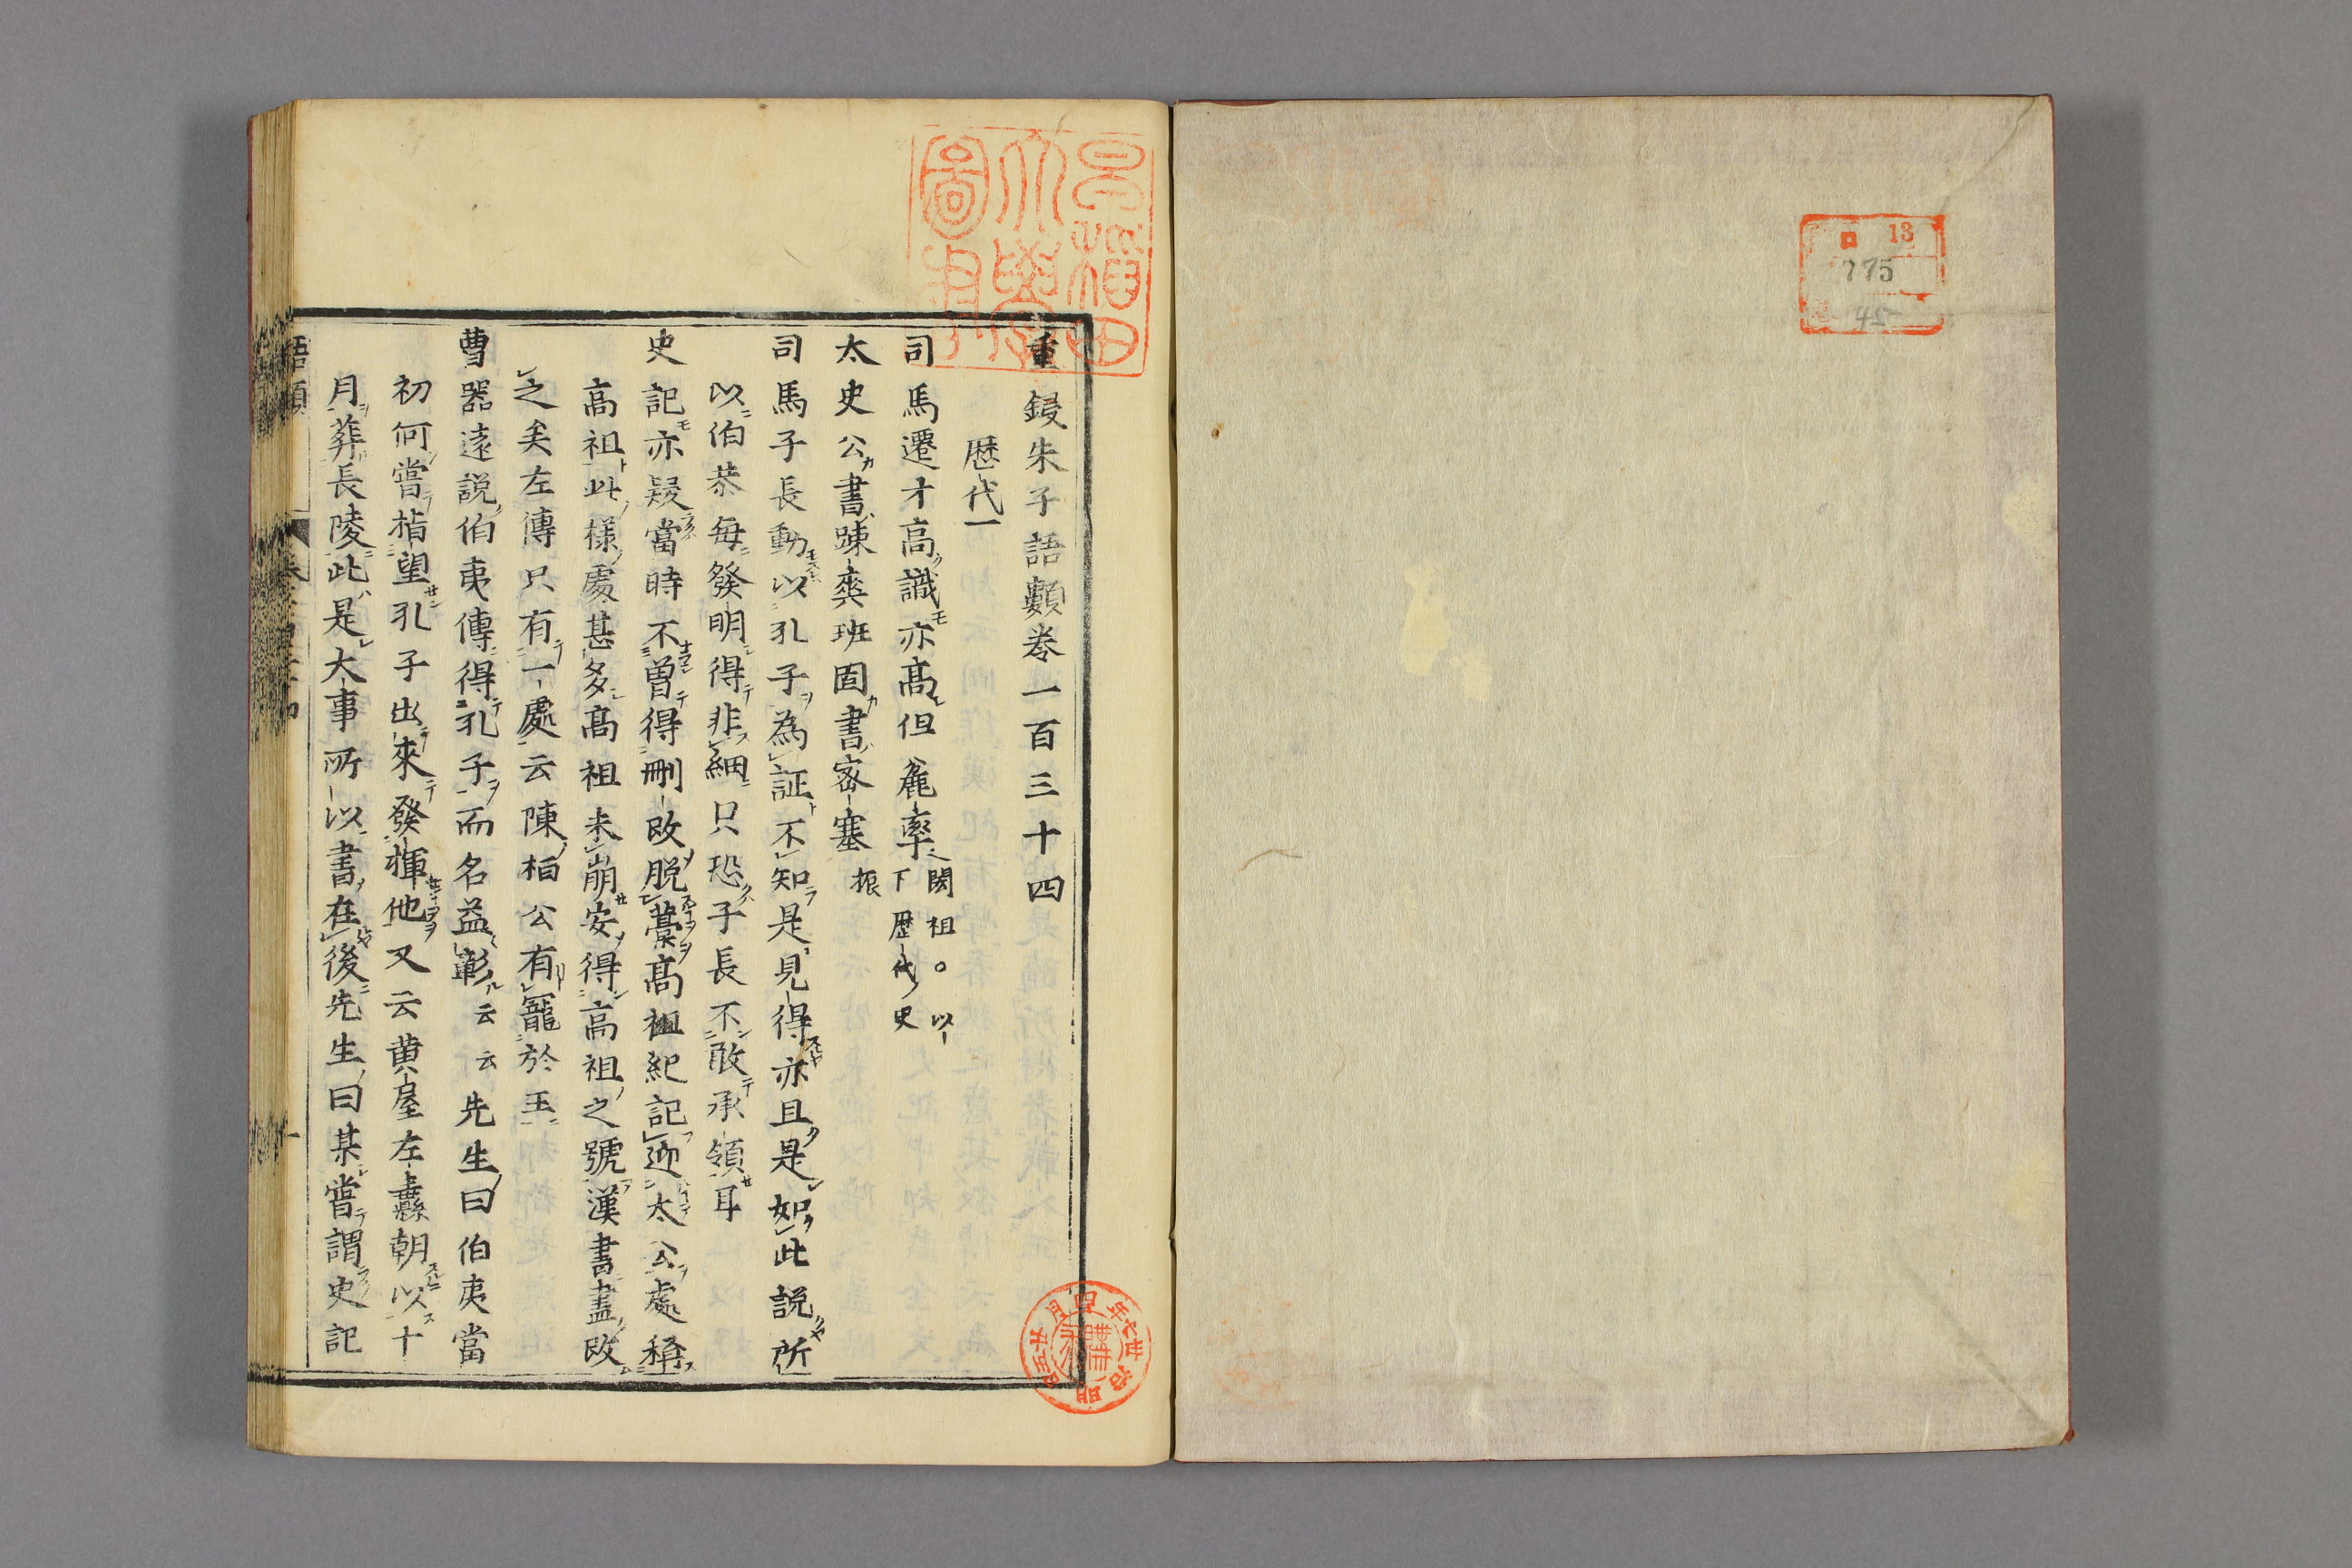 重鋟朱子語類巻一百三十四
歴代一
司馬遷才高識亦高但麄率閎祖。以下歴代史
太史公書踈爽班固書宻塞振
司馬子長動以孔子為証不知是見得亦且是如此説所
以伯恭毎發明得非細只恐子長不敢承領耳
史記亦疑當時不曽得刪改脱藁高祖紀記迎太公處稱
高祖此様處甚多高祖未崩安得高祖之號漢書盡改
之矣左傳只有一處云陳桓公有寵於王
曹器遠説伯夷傳得孔子而名益彰云云先生曰伯夷當
初何嘗指望孔子出來發揮他又云黄屋左纛朝以十
月葬長陵此是大事所以書在後先生曰某嘗謂史記
語類
早稲田
大學
圖書
明治卅七年四月廿五日
購求
ロ13
775
45